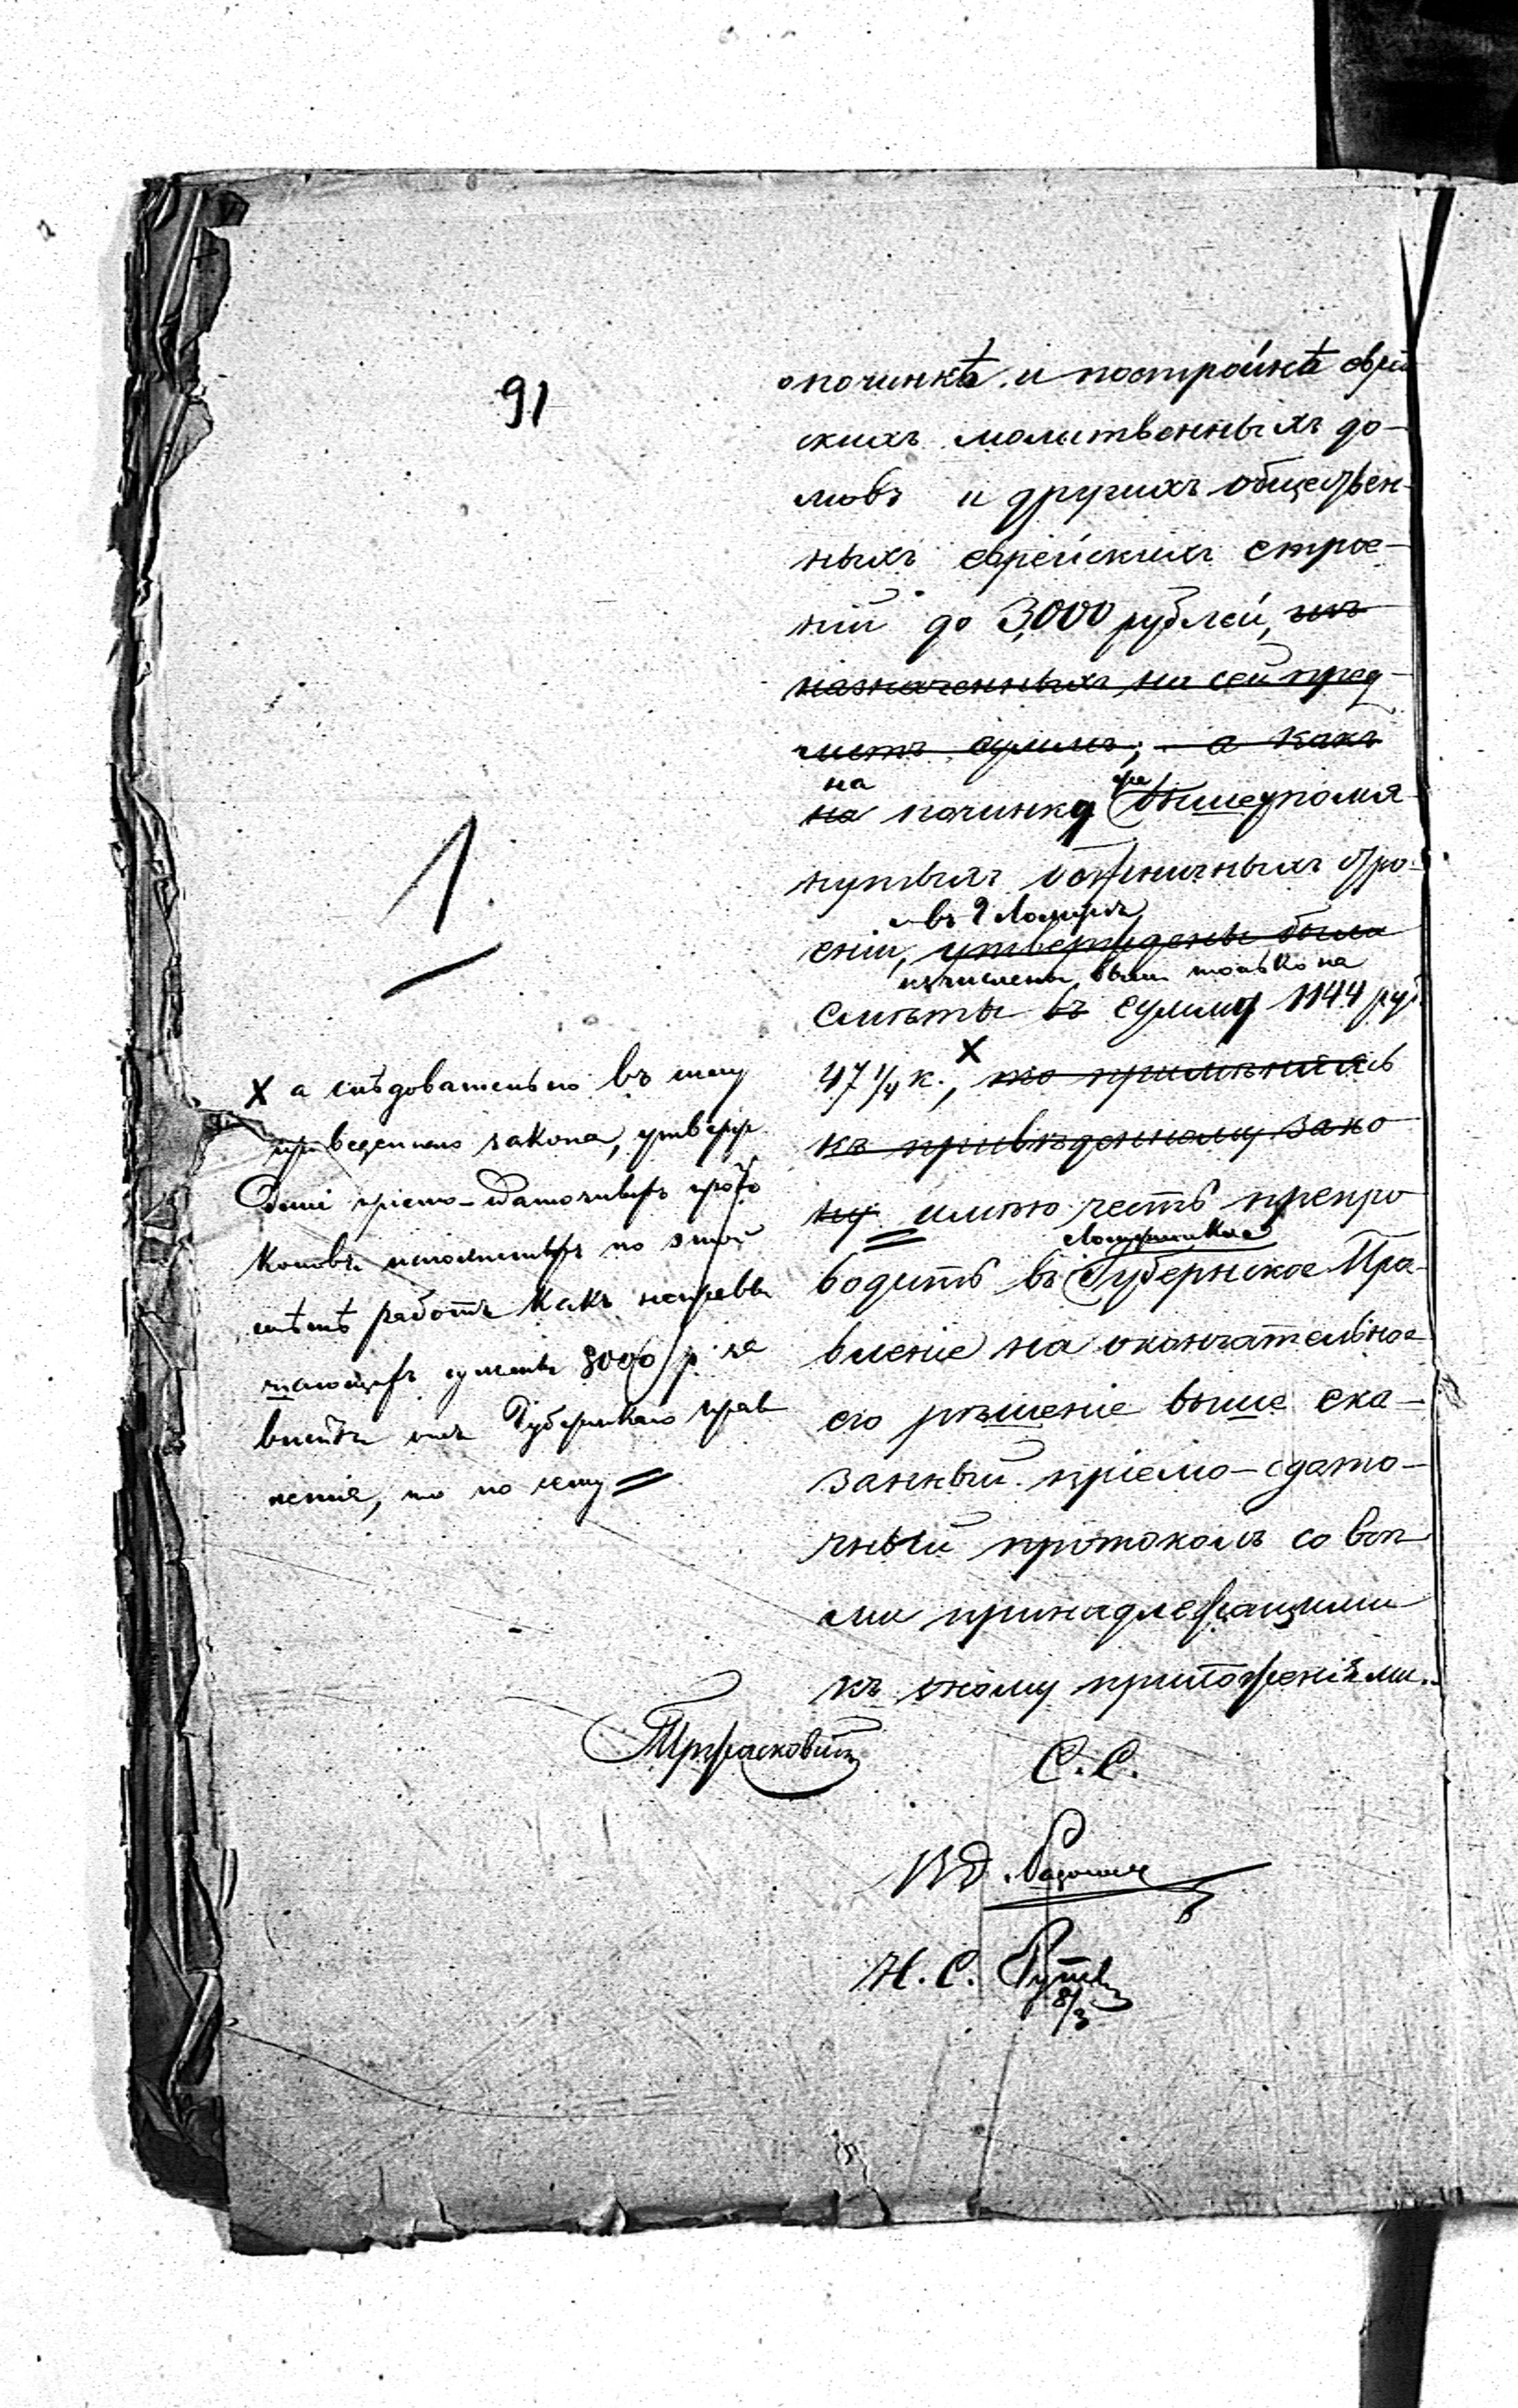 91
о починкѣ и постройкѣ еврей
скихъ молитвенныхъ до-
мовъ и другихъ обществен-
ныхъ еврейскихъ строе-
ній до 3,000 рублей, изъ
назначенныхъ на сей пред-
метъ суммъ; а какъ
на
на починку вышеупомя-
нутыхъ божничныхъ стро-
въ г Ломжѣ
еній, утверждены были
исчислены были только на
смѣты въ сумму 1144 руб.
47 1/4 к., X то примѣняясь
къ приведенному зако
ну имѣю честь препро
Ломжинское
водить въ Губернское Пра-
вленіе на окончательное
его рѣшеніе выше ска-
занный пріемо-сдато-
чный протоколъ со всѣ
ми принадлежащими
къ оному приложеніями.
1.
X а слѣдовательно въ силу
приведеннаго закона, утверж
деніе пріемо-сдаточныхъ прото
коловъ исполненныхъ по этой
смѣтѣ работъ какъ непревы
шающихъ суммы 3000 р. за
виситъ отъ Губернскаго прав
ленія, то по сему
С. С.
Н. С.
8/3